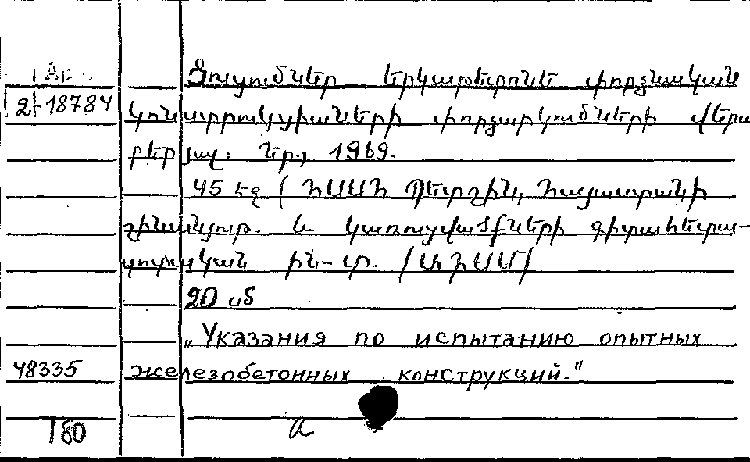 Ցուցումներ երկաթբետոնե փորձնական
2-18784 կոնստրուկցիաների փորձարկումների վերա
բերյալ։ Եր., 1969.
45 էջ (ՀՍՍՀ Պետշին, Հայաստանի
շինանյութ. և կառուցվածքների գիտահետա-
զոտական ին-տ. (ԱՒՍՄ)
20 սմ
„Указания по испытанию опытных
48335 железобетонных конструкций."
180 а